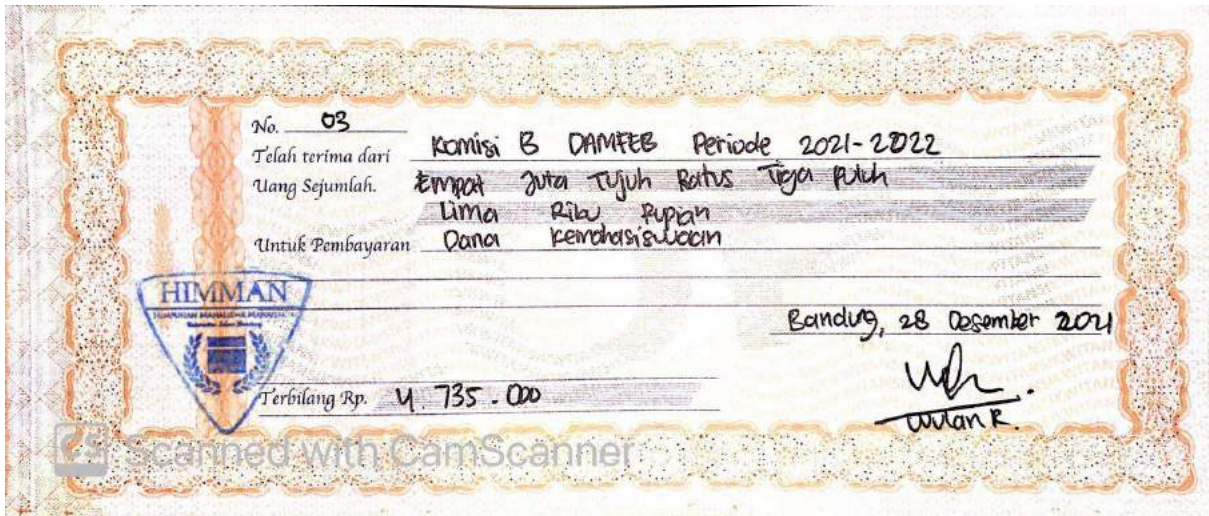 No. 03
Telah terima dari Komisi B DAMFEB Periode 2021-2022
Uang Sejumlah. Empat Juta Tujuh Ratus Tiga Puluh
Lima Ribu Rupiah
Untuk Pembayaran Dana Kemahasiswaan
HIMMAN
HIMPUNAN MAHASISWA MANAJEMEN
Bandung, 28 Desember 2021
Terbilang Rp. 4.735.000
Wulan R.
CS Scanned with CamScanner